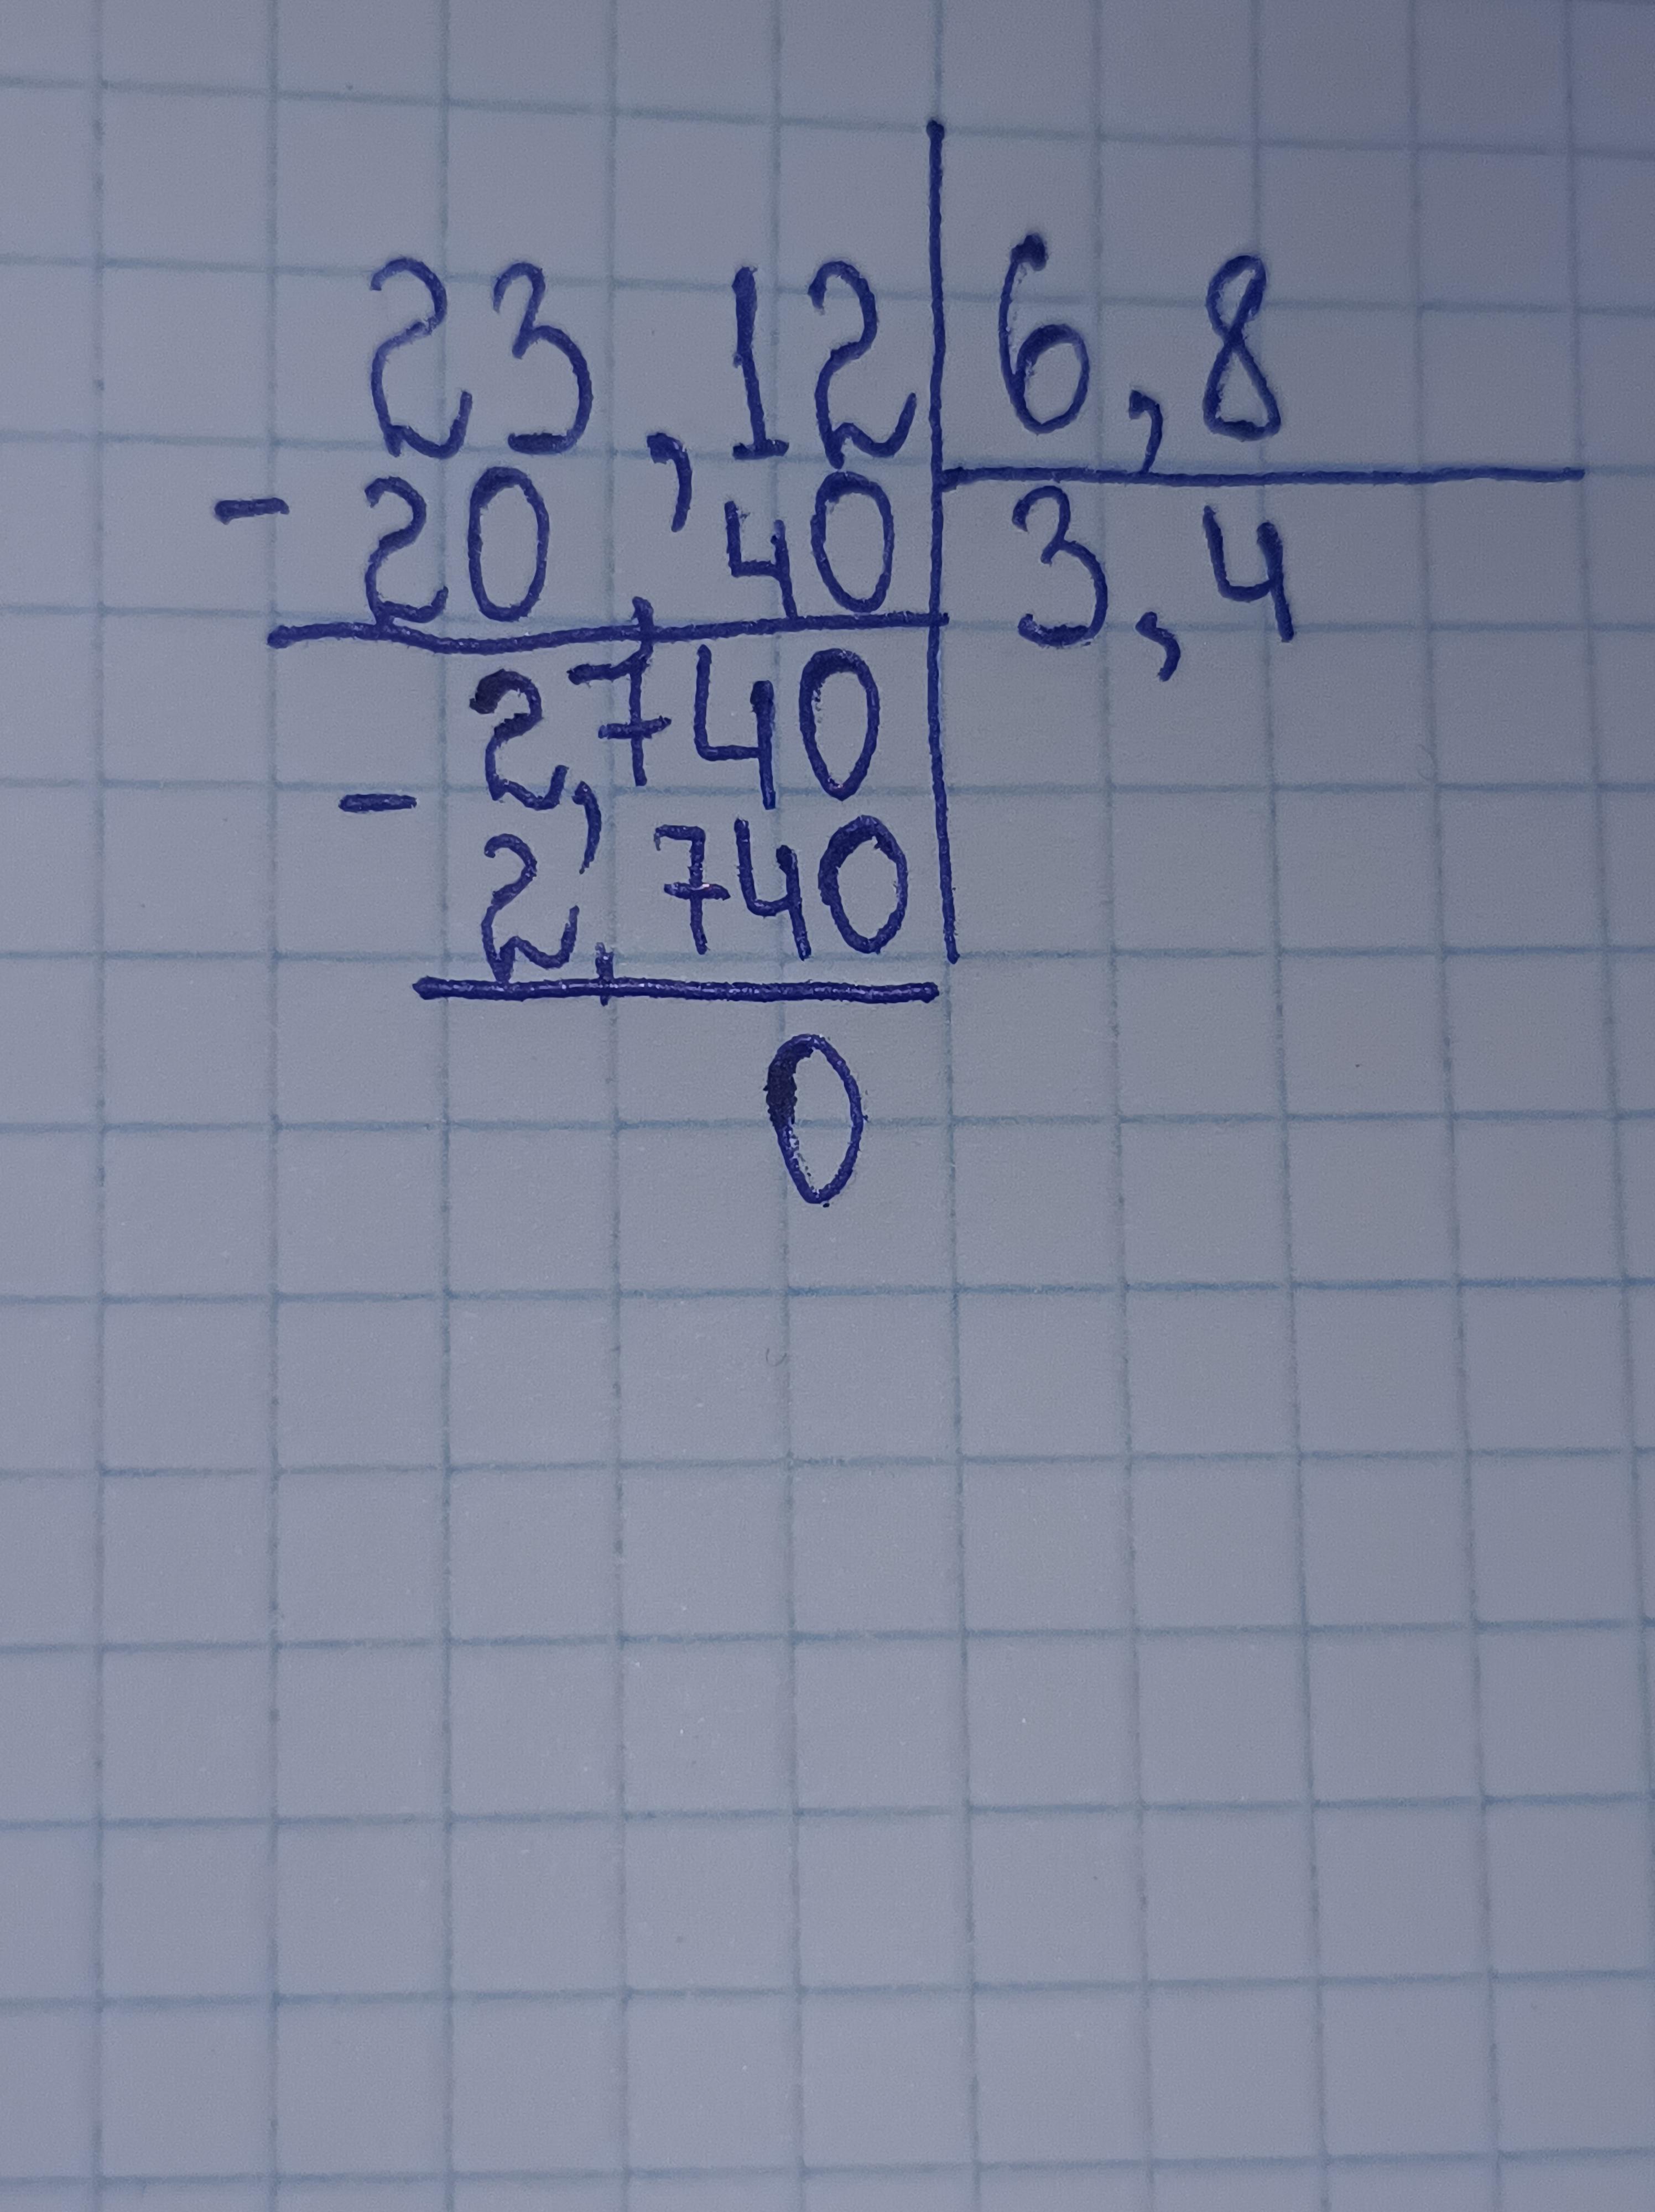 23,12 6,8
- 20,40 3,4
2,740
- 2,740
0